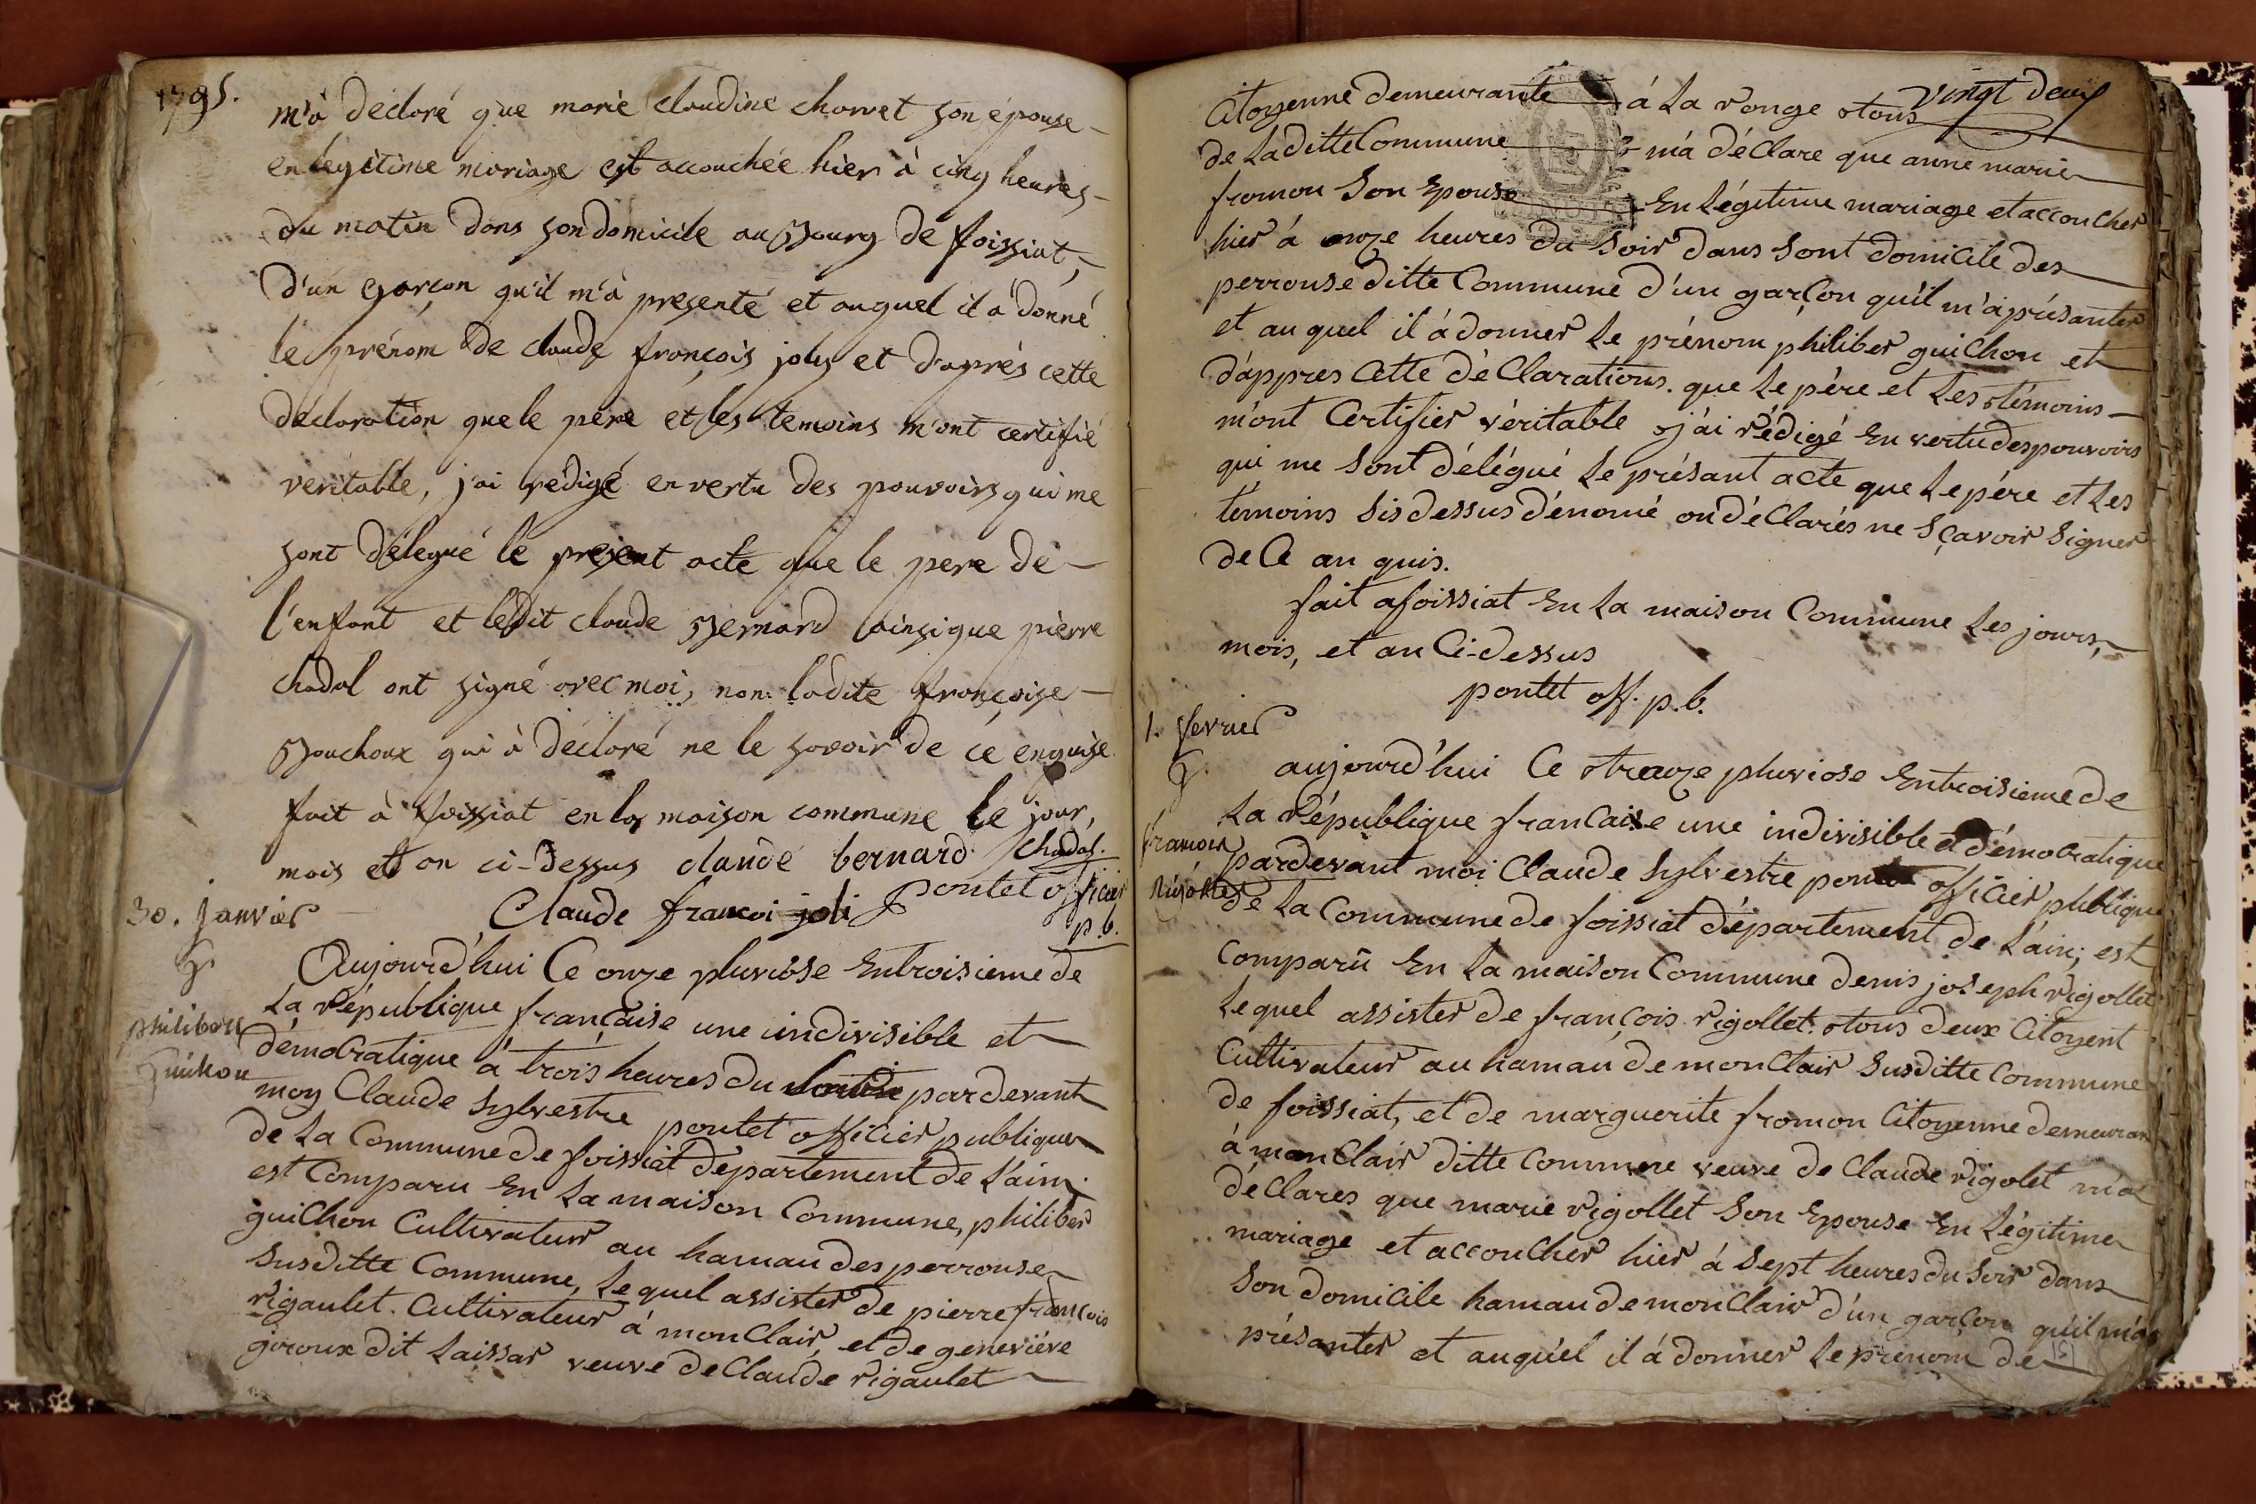 1795.
m'a declaré que marie claudine charvet son épouse
en legitime mariage est accouchée hier à cinq heures
du matin dans son domicile au Bourg de foissiat,
d'un garçon qu'il m'a presenté et auquel il a donné
le prénom de claude françois joly et d'après cette
declaration que le père et les temoins m'ont certifié
veritable, j'ai redigé en vertu des pouvoirs qui me
sont délegué le present acte que le pere de
l'enfant et ledit claude Bernard ainsi que pierre
chadal ont signé avec moi, non ladite françoise
Bouchoux qui à declaré ne le savoir de ce enquise
fait à foissiat en la maison commune le jour,
mois et an ci-dessus claude bernard chadal.
Claude francoi joli pontet officier
p.b.
30. janvier
philibert
Guichon
Aujourd'hui Ce onze pluviose Entroisieme de
La République française une indivisible et
démocratique à trois heures du pardevant
moy Claude Sylvestre pontet officier publique
de La Commune de foissiat département de L'ain,
est Comparu En La maison Commune, philiber
guichon Cultivateur au hamau des perrouse
Susditte Commune, Lequel assister de pierre françois
rigaulet. Cultivateur á monClair, et de geneviéve
giroux dit Laissar veuve de Claude rigaulet
vingt deux
Citoyenne demeurante á La ronge tous
de La ditte Commune m'á déClare que anne marie
fromon Son Epouse En Légitime mariage et accoucher
hier á onze heures du Soir dans Sont domicile des
perrouse ditte Commune d'un garçon qu'il m'a présanter
et au quel il á donner Le prénom philiber guichon et
d'appres Cette déClarations. que Le pére et Les témoins
m'ont Certifier véritable j'ái rédigé En vertu des pouvoirs
qui me Sont délégué Le présant acte que Le pére et Les
témoins Sis dessus dénomé on déClarés ne Sçavoir Signer
de Ce an quis.
fait a foissiat En La maison Commune Les jours,
mois, et an Ci-dessus
pontet off. p.b.
1. fevrier
francois
Rigollet
aujourd'hui Ce treize pluviose Entroisieme de
La République francaise une indivisible et démocratique
pardevant moi Claude Sylvestre pontet officier publique
de La Commune de foissiat département de L'ain, est
Comparü En La maison Commune denis joseph rigollet
Lequel assister de françois rigollet. tous deux Citoyent
Cultivateur au hamau de monClair Susditte Commune
de foissiat, et de marguerite fromon Citoyenne demeuran
á monClair ditte Commune veuve de Claude rigolet m'a
déClares que marie rigollet Son Epouse En Légitime
mariage et accoucher hier á Sept heures du Soir dans
Son domicile hamau de monClair d'un garçon qu'il m'a
présanter et auquel il á donner Le prénom de